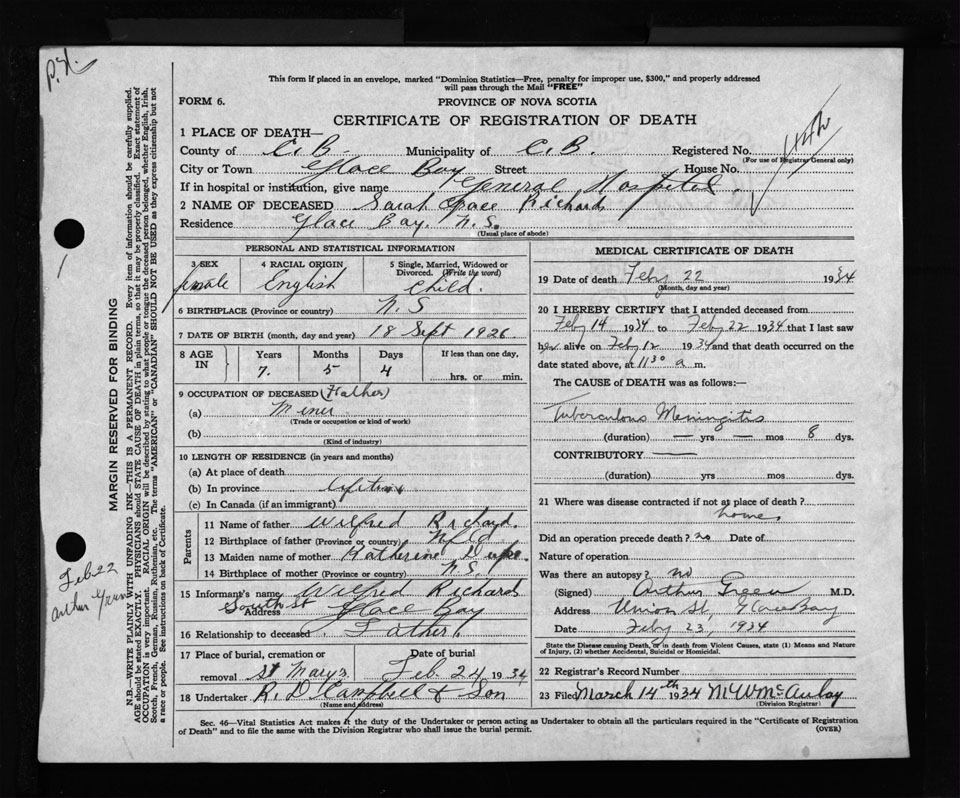 This form if placed in an envelope, marked "Dominion Statistics—Free, penalty for improper use, $300," and properly addressed
will pass through the Mail "FREE"
FORM 6.
PROVINCE OF NOVA SCOTIA
CERTIFICATE OF REGISTRATION OF DEATH
1 PLACE OF DEATH—
County of C.B. Municipality of C.B. Registered No.
(For use of Registrar General only)
City or Town Glace Bay Street House No.
If in hospital or institution, give name General Hospital.
2 NAME OF DECEASED Sarah Grace Richard
Residence Glace Bay. N.S.
(Usual place of abode)
PERSONAL AND STATISTICAL INFORMATION
3 SEX 4 RACIAL ORIGIN 5 Single, Married, Widowed or Divorced. (Write the word)
female English Child.
6 BIRTHPLACE (Province or country) N.S
7 DATE OF BIRTH (month, day and year) 18 Sept 1926.
8 AGE IN Years Months Days If less than one day,
7. 5 4 hrs. or min.
9 OCCUPATION OF DECEASED (Father)
(a) Miner
(Trade or occupation or kind of work)
(b)
(Kind of industry)
10 LENGTH OF RESIDENCE (in years and months)
(a) At place of death
(b) In province lifetime
(c) In Canada (if an immigrant)
Parents
11 Name of father Wilfred Richard.
12 Birthplace of father (Province or country) Nfld
13 Maiden name of mother Katherine
14 Birthplace of mother (Province or country) N.S.
15 Informant's name Wilfred Richard
South St
Address Glace Bay
16 Relationship to deceased Father.
17 Place of burial, cremation or removal Date of burial
St Marys Feb. 24 1934
18 Undertaker R. D Campbell & Son
(Name and address)
MEDICAL CERTIFICATE OF DEATH
19 Date of death Feby 22 1934
(Month, day and year)
20 I HEREBY CERTIFY that I attended deceased from
Feby 14 1934 to Feby 22 1934 that I last saw
her alive on Feby 12 1934 and that death occurred on the
date stated above, at 11 30 a m.
The CAUSE of DEATH was as follows:—
Tuberculous Meningitis
(duration) — yrs — mos 8 dys.
CONTRIBUTORY —
(duration) yrs mos dys.
21 Where was disease contracted if not at place of death?
home
Did an operation precede death? no Date of
Nature of operation
Was there an autopsy? no
(Signed) Arthur Green M.D.
Address Union St, Glace Bay
Date Feby 23, 1934
State the Disease causing Death, or in death from Violent Causes, state (1) Means and Nature
of Injury, (2) whether Accidental, Suicidal or Homicidal.
22 Registrar's Record Number
23 Filed March 14th 1934 M W McAulay
(Division Registrar)
Sec. 46—Vital Statistics Act makes it the duty of the Undertaker or person acting as Undertaker to obtain all the particulars required in the "Certificate of Registration
of Death" and to file the same with the Division Registrar who shall issue the burial permit.
(OVER)
MARGIN RESERVED FOR BINDING
N.B.—WRITE PLAINLY WITH UNFADING INK—THIS IS A PERMANENT RECORD. Every item of information should be carefully supplied.
AGE should be stated EXACTLY. PHYSICIANS should STATE CAUSE OF DEATH in plain terms, so that it may be properly classified. Exact statement of
OCCUPATION is very important. RACIAL ORIGIN will be described by stating to what people or tongue the deceased person belonged, whether English, Irish,
Scotch, French, German, Russian, Ruthenian, etc. The terms "AMERICAN" or "CANADIAN" SHOULD NOT BE USED as they express citizenship but not
a race or people. See instructions on back of Certificate.
Feb 22
Arthur Green